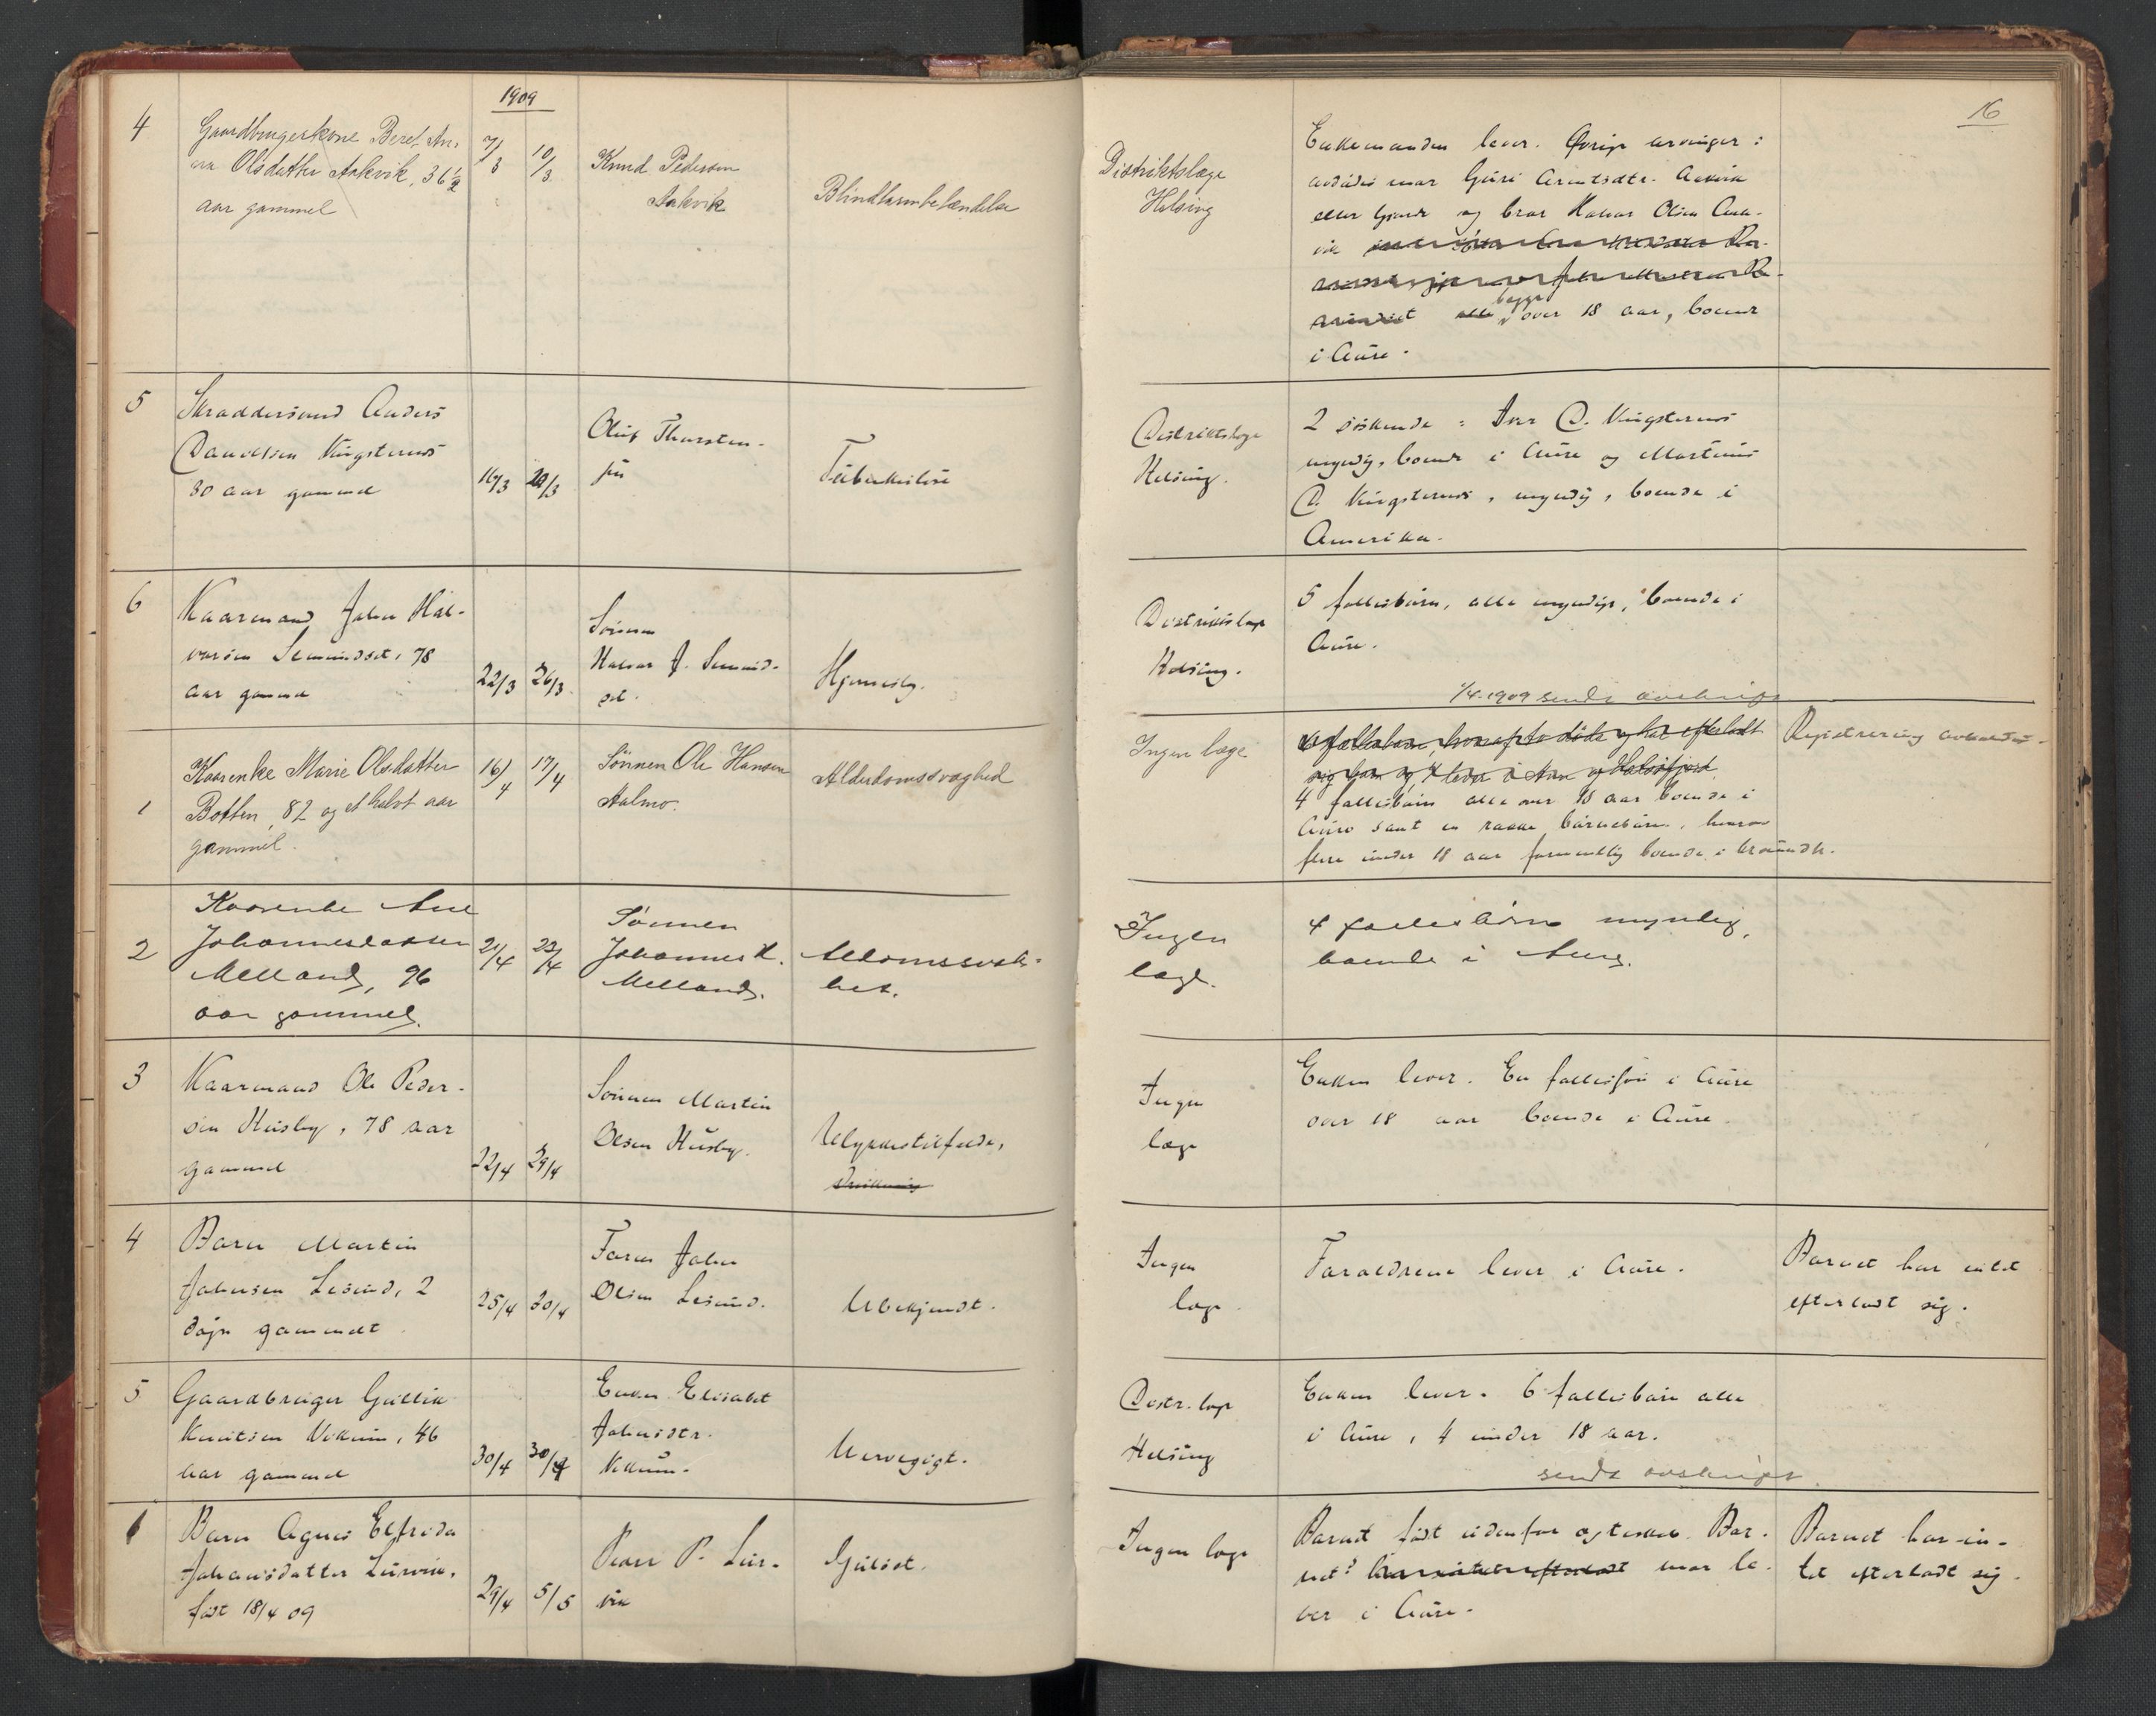 1909
16
4
Gaardbrugerkone Beret An-
na Olsdatter Aakvik, 36 1/2
aar gammel
7/3
10/3
Knud Pedersen
Aakvik
Blindtarmbetændelse
Distriktslæge
Helsing
Enkemanden lever. Øvrige arvinger:
avdødes mor Guri Arntsdtr. Aakvik
eller Gjerde og bror Halvor Olsen Aak-
vik
begge over 18 aar, boende
i Aure.
5
Skræddersvend Anders
Danielsen Vingsternes
30 aar gammel
16/3
20/3
Oluf Thorsten-
sen
Tuberkulose
Distriktslæge
Helsing.
2 søskende: Iver D. Vingsternes
myndig, boende i Aure og Martinus
D. Vingsternes, myndig, boende i
Amerika.
6
Kaarmand John Hal-
vorsen Semundset, 78
aar gammel
22/3
26/3
Sønnen
Halvor J. Semund-
set.
Hjerneslag.
Distriktslæge
Helsing.
5 fællesbørn, alle myndige, boende i
Aure.
1/4-1909 sendt avskrift
1
Kaarenke Marie Olsdatter
Botten, 82 og et halvt aar
gammel.
16/4
17/4
Sønnen Ole Hansen
Aalmo.
Alderdomssvaghed
Ingen læge
6 fællesbørn, hvoraf to døde og har efterladt
sig børn og 4 lever i Aure og Halsafjord
4 fællesbørn alle over 18 aar boende i
Aure samt en række børnebørn, hvorav
flere under 18 aar formentlig boende i
Registrering avholdes
2
Kaarenke Ane
Johannesdatter
Melland, 96
aar gammel.
21/4
22/4
Sønnen
Johannes H.
Melland.
Aldomssvak-
het.
Ingen
læge.
4 fællesbørn myndig,
boende i Aure.
3
Kaarmand Ole Peder-
sen Husby, 78 aar
gammel
22/4
29/4
Sønnen Martin
Olsen Husby.
Ulykkestilfælde,
Drukning
Ingen
læge
Enken lever. En fællessøn i Aure
over 18 aar boende i Aure.
4
Barn Martin
Johnsen Lesund, 2
døgn gammelt
25/4
30/4
Faren John
Olsen Lesund.
Ubekjendt.
Ingen
læge
Forældrene lever i Aure.
Barnet har intet
efterladt sig.
5
Gaardbruger Gullik
Knutsen Vikum, 46
aar gammel
30/4
30/4
Enken Elisabet
Johnsdtr.
Vikum.
Nervegigt.
Distr. læge
Helsing
Enken lever. 6 fællesbørn alle
i Aure, 4 under 18 aar.
sendt avskrift
1
Barn Agnes Elfrida
Johansdatter Lurvik,
født 18/4 09
29/4
5/5
Peder P. Lur-
vik
Gulsot.
Ingen læge
Barnet født udenfor egteskab. Bar-
nets har intet efterladt mor le-
ver i Aure.
Barnet har in-
tet efterladt sig.